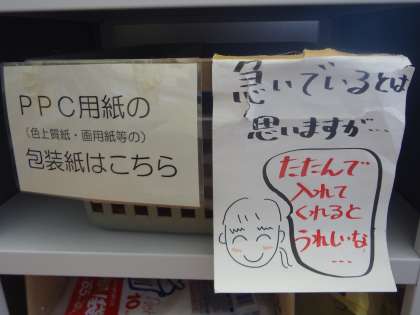 PPC用紙の
(色上質紙・画用紙等の)
包装紙はこちら
急いでいるとは
思いますが…
たたんで
入れて
くれると
うれしいな
…